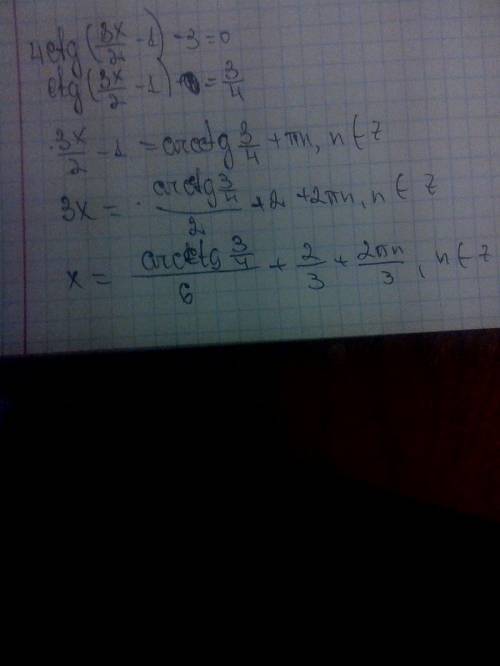 4ctg(3x/2 - 1) - 3 = 0
ctg(3x/2 - 1) = 3/4
3x/2 - 1 = arcctg 3/4 + πn, n ∈ Z
3x = arcctg 3/4 / 2 + 2 + 2πn, n ∈ Z
x = arcctg 3/4 / 6 + 2/3 + 2πn/3, n ∈ Z